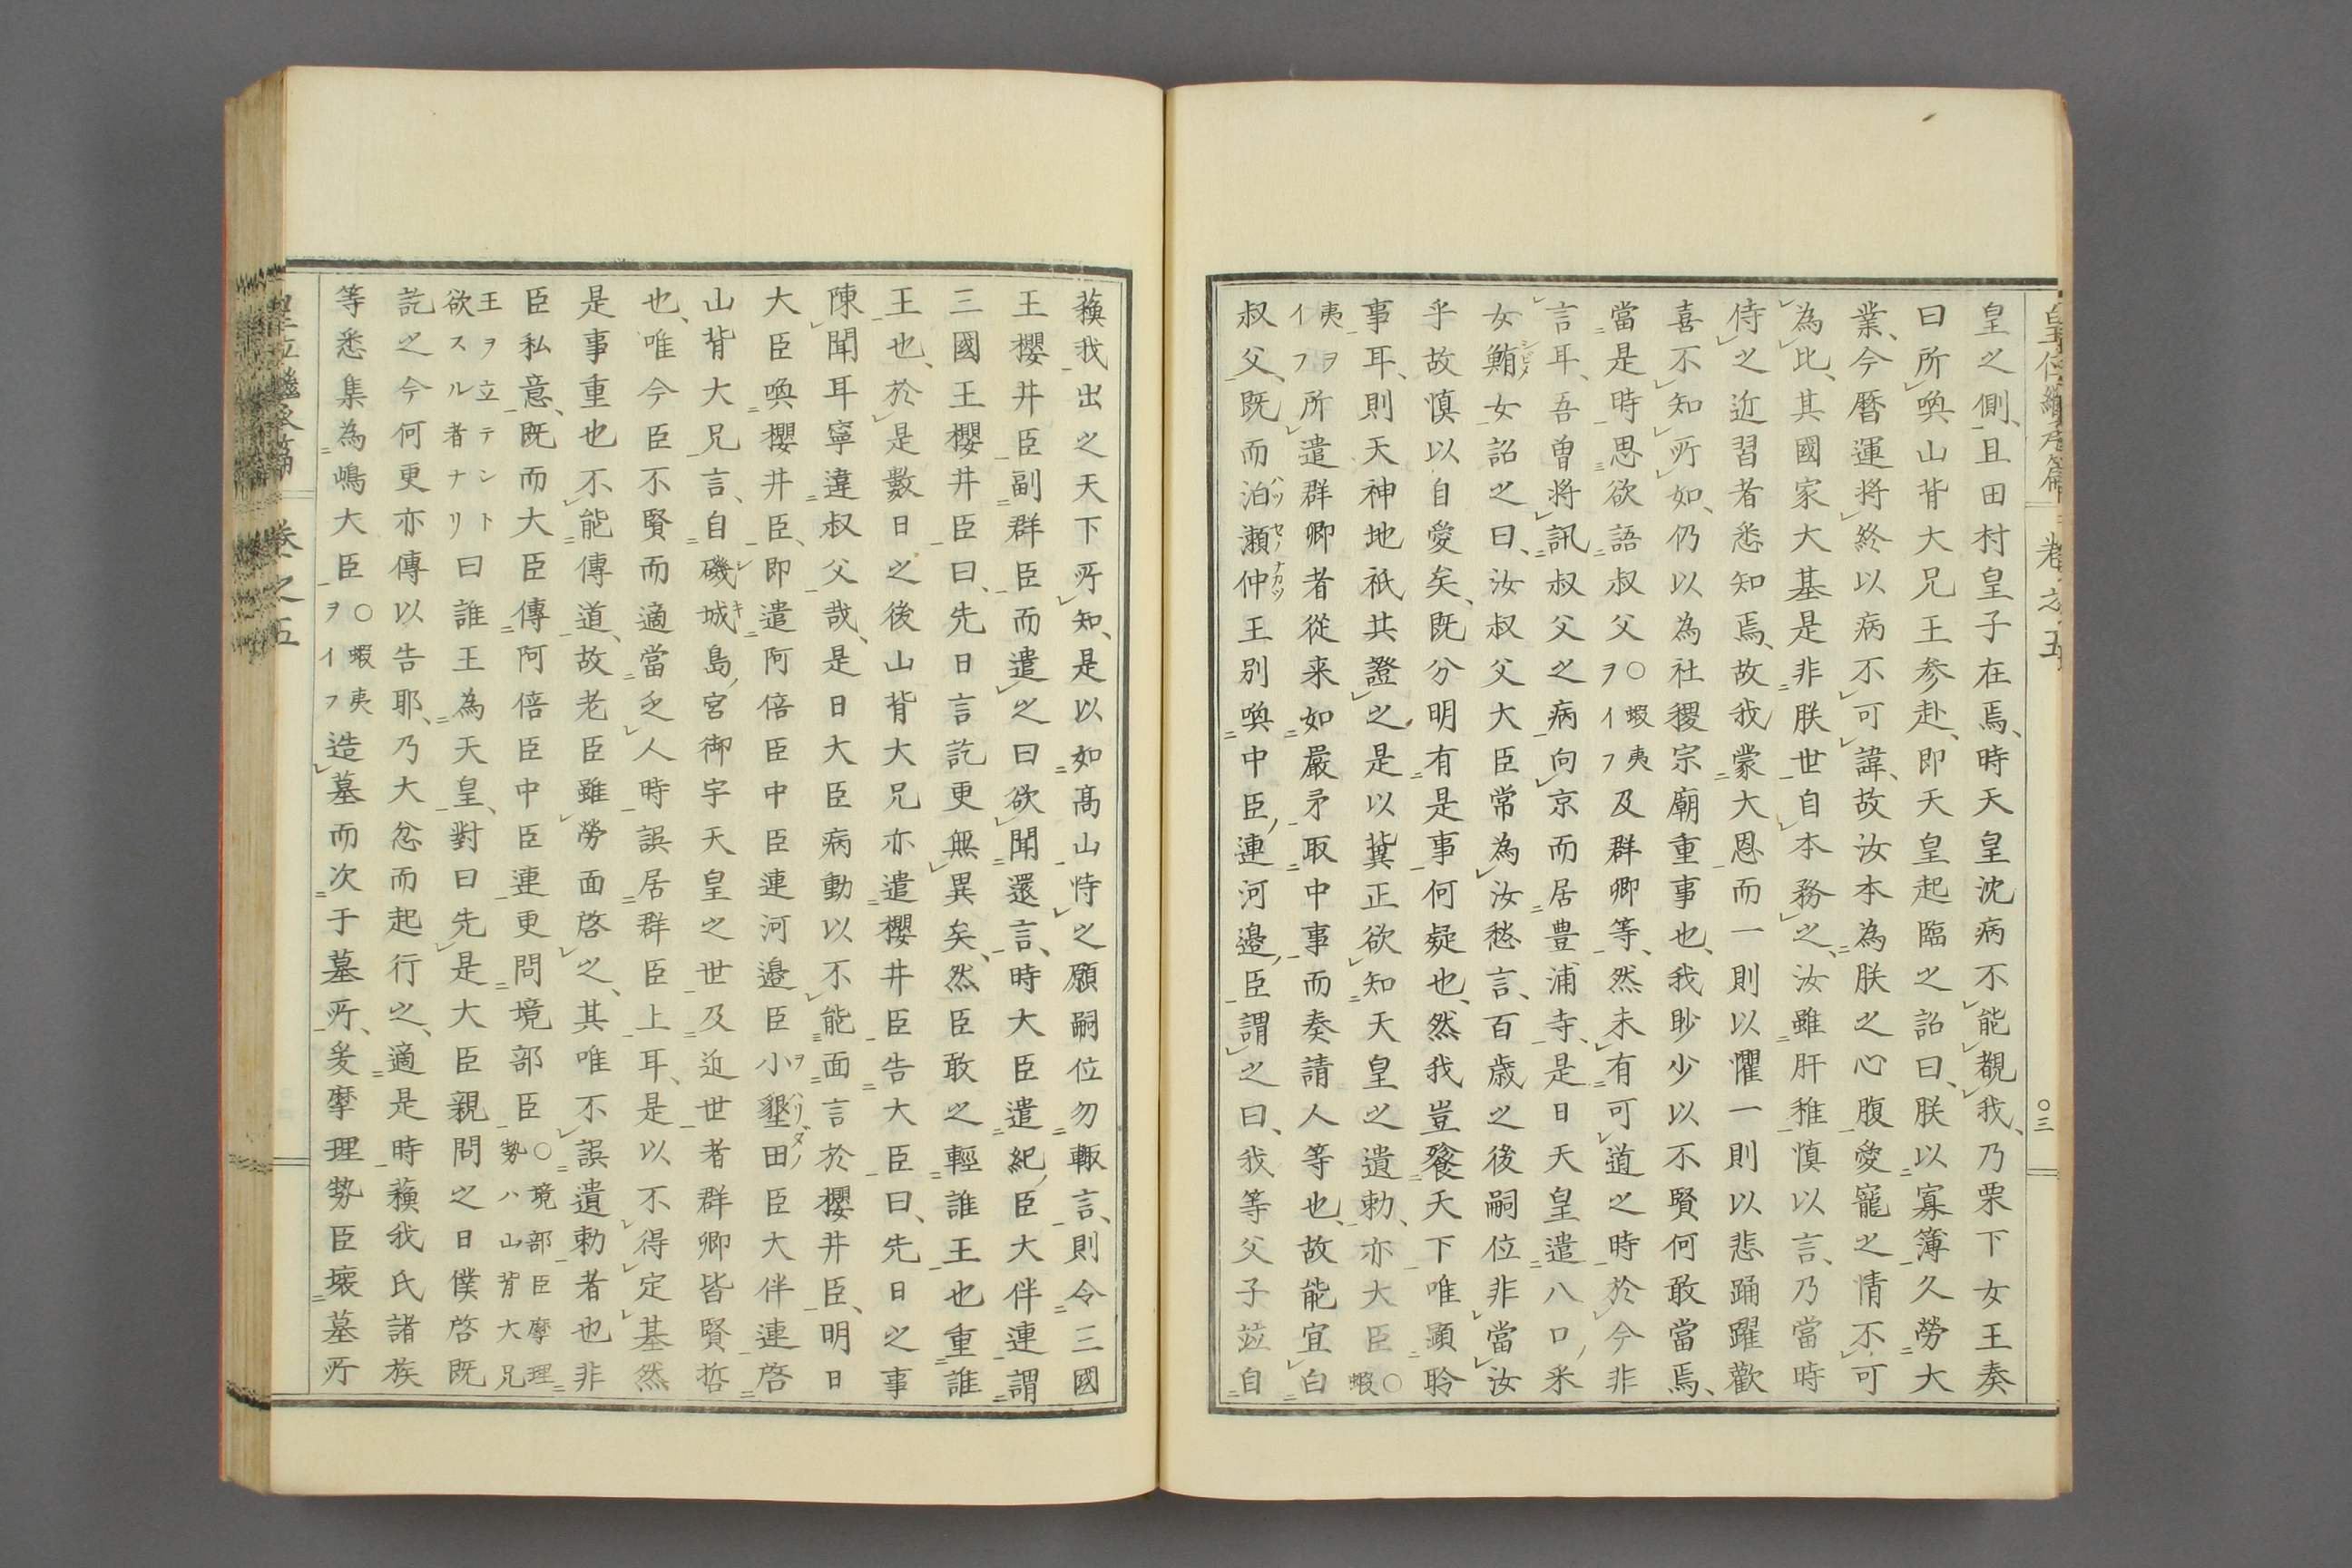 皇之側、且田村皇子在焉、時天皇沈病不能覩我、乃栗下女王奏
曰所喚山背大兄王参赴、即天皇起臨之詔曰、朕以寡簿久勞大
業、今曆運將終以病不可諱、故汝本為朕之心腹愛寵之情不可
為比、其國家大基是非朕世自本務之、汝雖肝稚慎以言、乃當時
侍之近習者悉知焉、故我蒙大恩而一則以懼一則以悲踊躍歡
喜不知所如、仍以為社稷宗廟重事也、我眇少以不賢何敢當焉、
當是時思欲語叔父○蝦夷ヲイフ及群卿等、然未有可道之時於今非
言耳、吾曾將訊叔父之病向京而居豊浦寺、是日天皇遣八口釆
女鮪シビノ女詔之曰、汝叔父大臣常為汝愁言、百歲之後嗣位非當汝
乎故慎以自愛矣、既分明有是事何疑也、然我豈餮天下唯顕聆
事耳、則天神地祇共證之、是以冀正欲知天皇之遺勅、亦大臣○蝦
夷ヲイフ所遣群卿者從来如嚴矛取中事而奏請人等也、故能宜白
叔父、既而泊瀬仲ハツセノナカツ王別喚中臣連河邉臣謂之曰、我等父子竝自
蘓我出之天下所知、是以如髙山恃之願嗣位勿輙言、則令三國
王櫻井臣副群臣而遣之曰欲聞還言、時大臣遣紀臣大伴連謂
三國王櫻井臣曰、先日言訖更無異矣、然臣敢之輕誰王也重誰
王也、於是數日之後山背大兄亦遣櫻井臣告大臣曰、先日之事
陳聞耳寧違叔父哉、是日大臣病動以不能面言於櫻井臣、明日
大臣喚櫻井臣、即遣阿倍臣中臣連河邉臣小墾田ヲハリダノ臣大伴連啓
山背大兄言、自磯城キ島宮御宇天皇之世及近世者群卿皆賢哲
也、唯今臣不賢而適當乏人時誤居群臣上耳、是以不得定基然
是事重也不能傳道、故老臣雖勞面啓之、其唯不誤遺勅者也非
臣私意、既而大臣傳阿倍臣中臣連更問境部臣○境部臣摩理勢ハ山背大兄
王ヲ立テント欲スル者ナリ曰誰王為天皇、對曰先是大臣親問之日僕啓既
訖之今何更亦傳以告耶、乃大忿而起行之、適是時蘓我氏諸族
等悉集為嶋大臣○蝦夷ヲイフ造墓而次于墓所、爰摩理勢臣壞墓所
巻之五
巻之五
○三